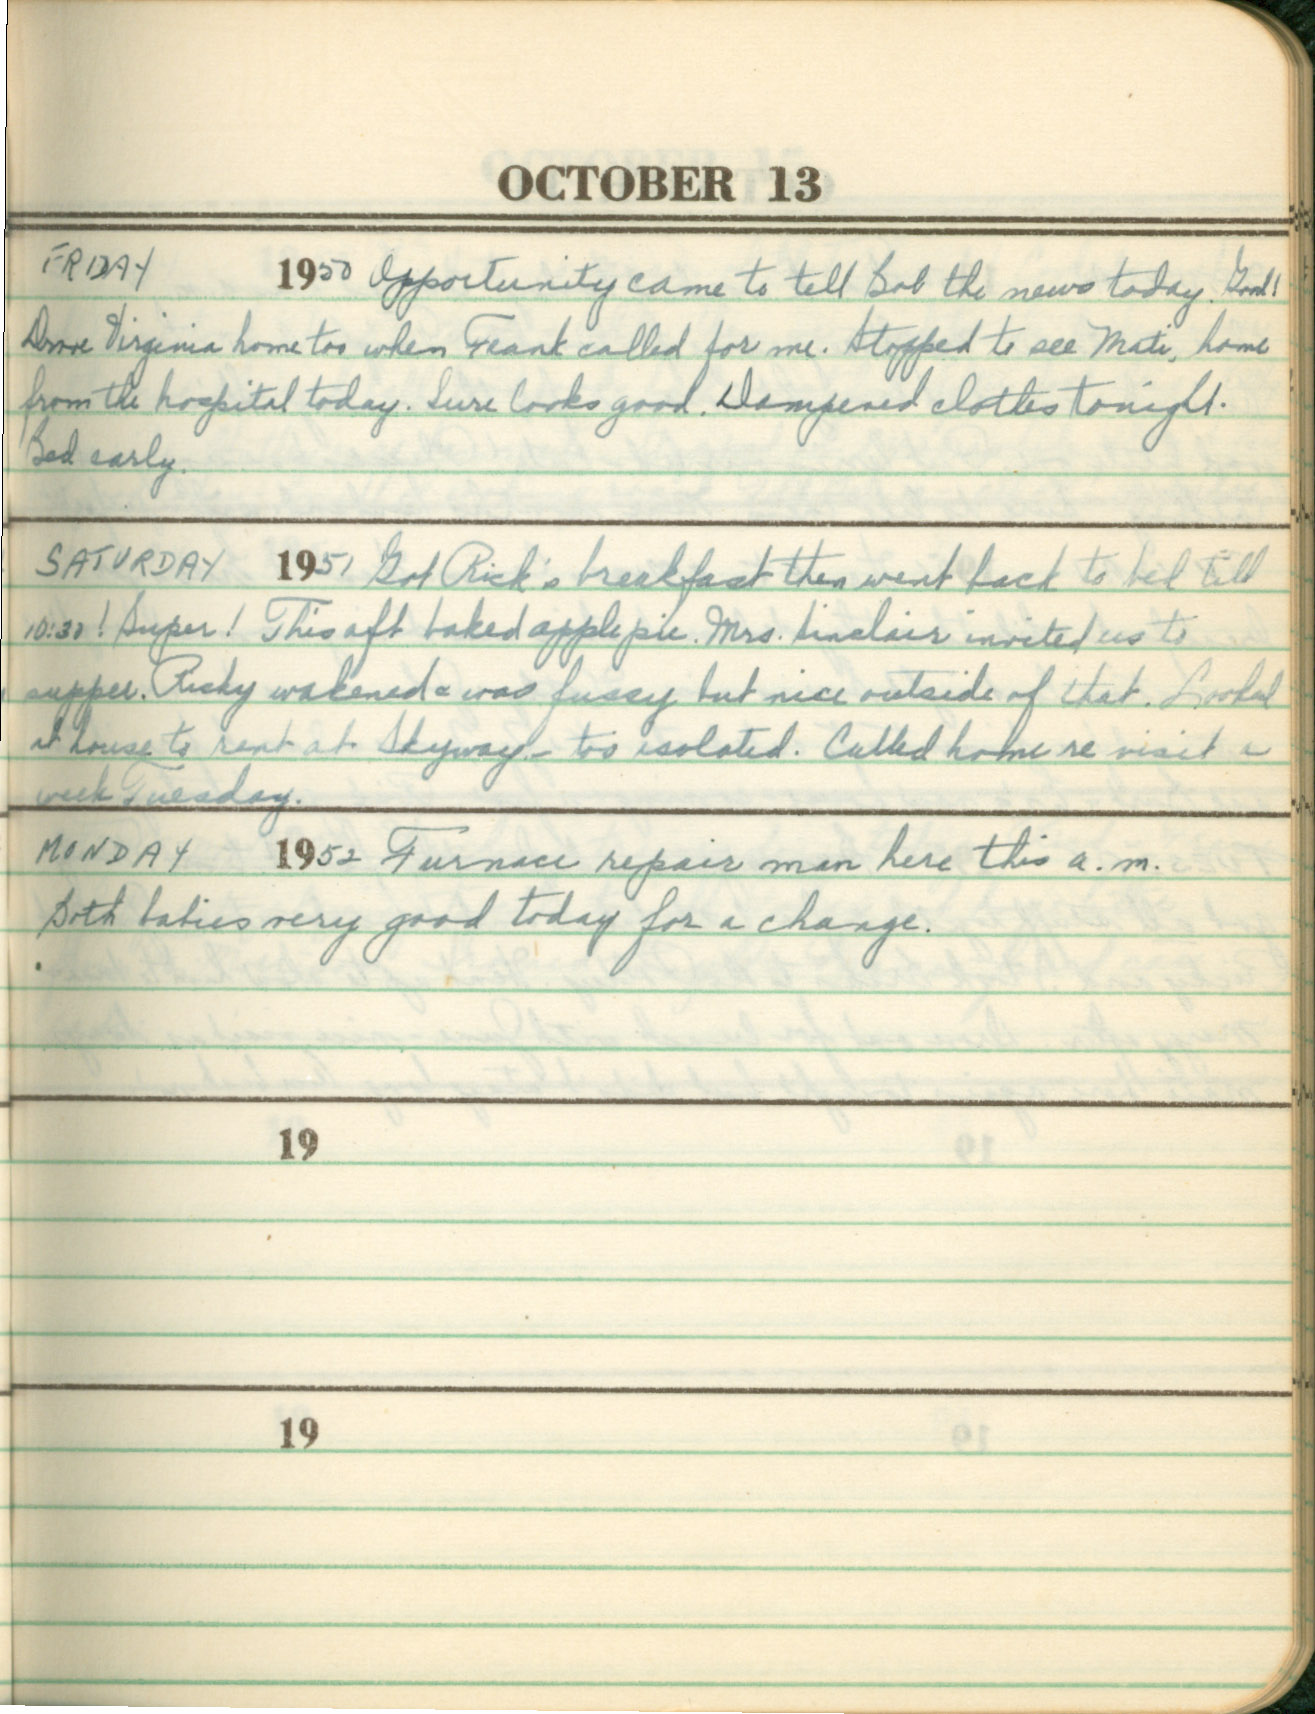 OCTOBER 13
FRIDAY 1950 Opportunity came to tell Bob the news today. Good!
Drove Virginia home too when Frank called for me. Stopped to see Mati, home
from the hospital today. Sure looks good. Dampened clothes tonight.
Bed early.
SATURDAY 1951 Got Rick's breakfast then went back to bed till
10:30! Super! This aft baked apple pie. Mrs. Sinclair invited us to
supper. Ricky wakened & was fussy but nice outside of that. Looked
at house to rent at Skyway - too isolated. Called home re visit a
week Tuesday.
MONDAY 1952 Furnace repair man here this a.m.
Both babies very good today for a change.
19
19